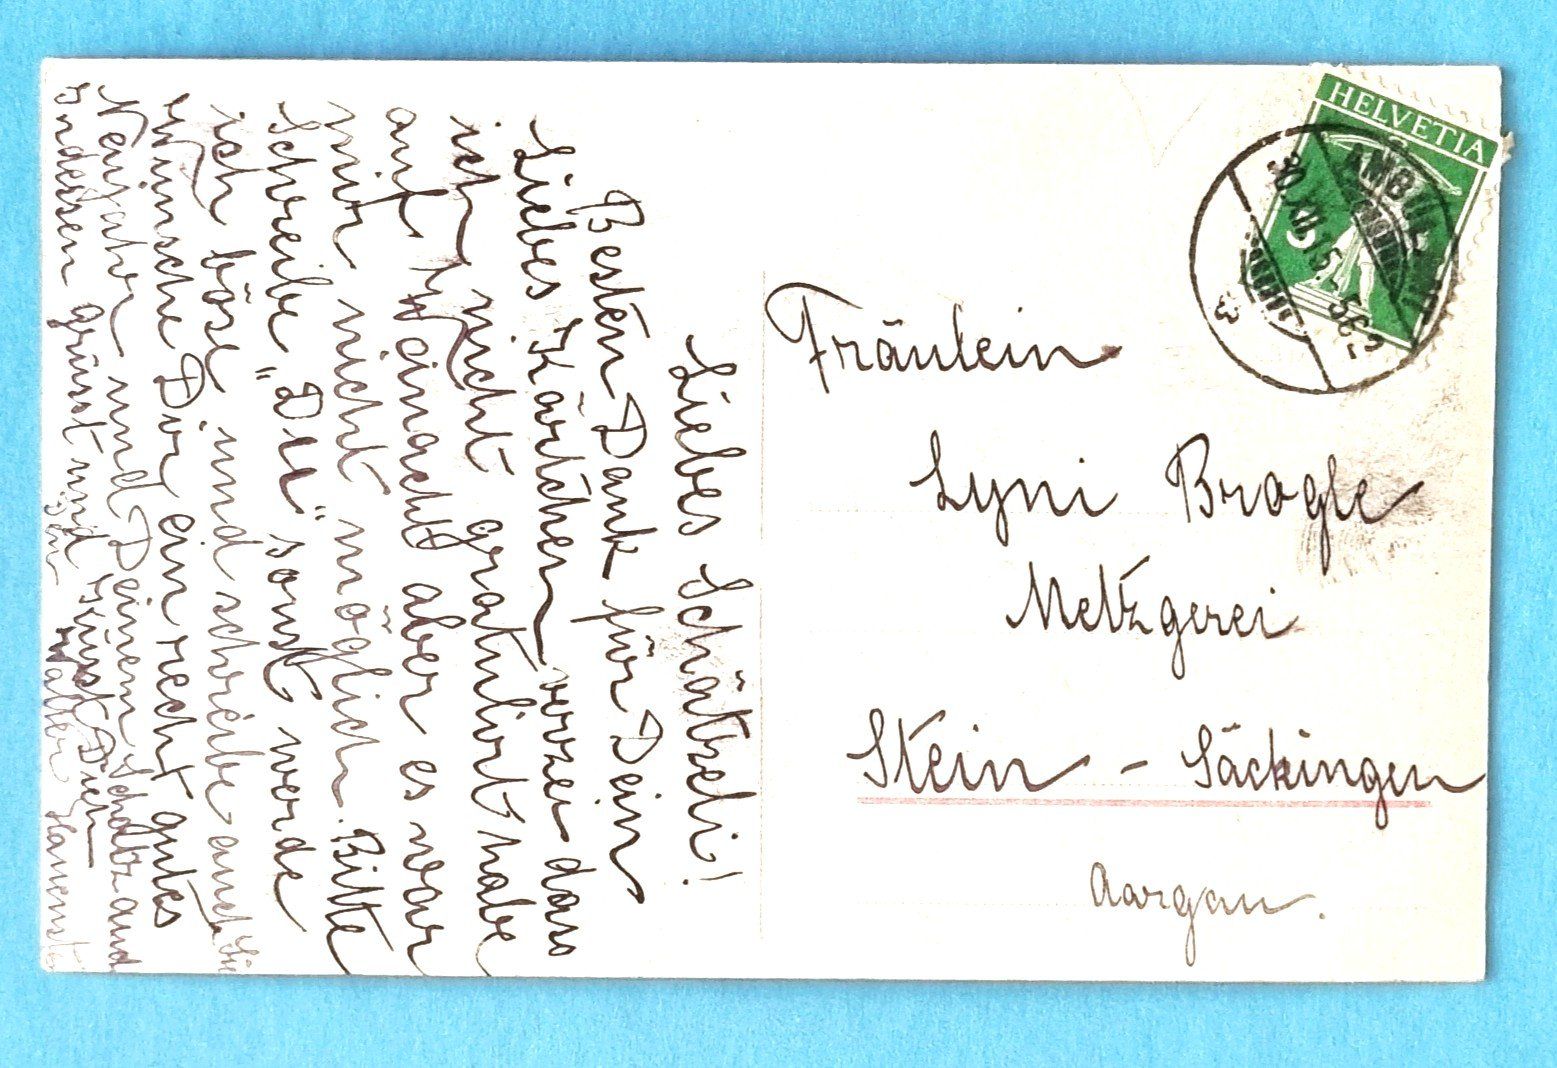 Liebes Schätzeli!
Besten Dank für Dein
Liebes Kärtchen verzei dass
ich nicht gratuliert habe
auf Weinacht aber es war
mir nicht möglich. Bitte
schreibe „Du" sonst werde
ich böse und schreibe auch Sie
Wünsche Dir ein recht gutes
Neujahr und Deinem Schatz auch
Indessen grüsst und küsst Dich
Walter
Fräulein
Lyni Brogle
Metzgerei
Stein - Säckingen
Aargau.
HELVETIA
5
AMBUL
30 XII 15
3